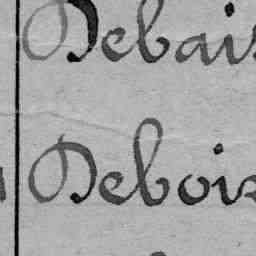 Debais
Debois